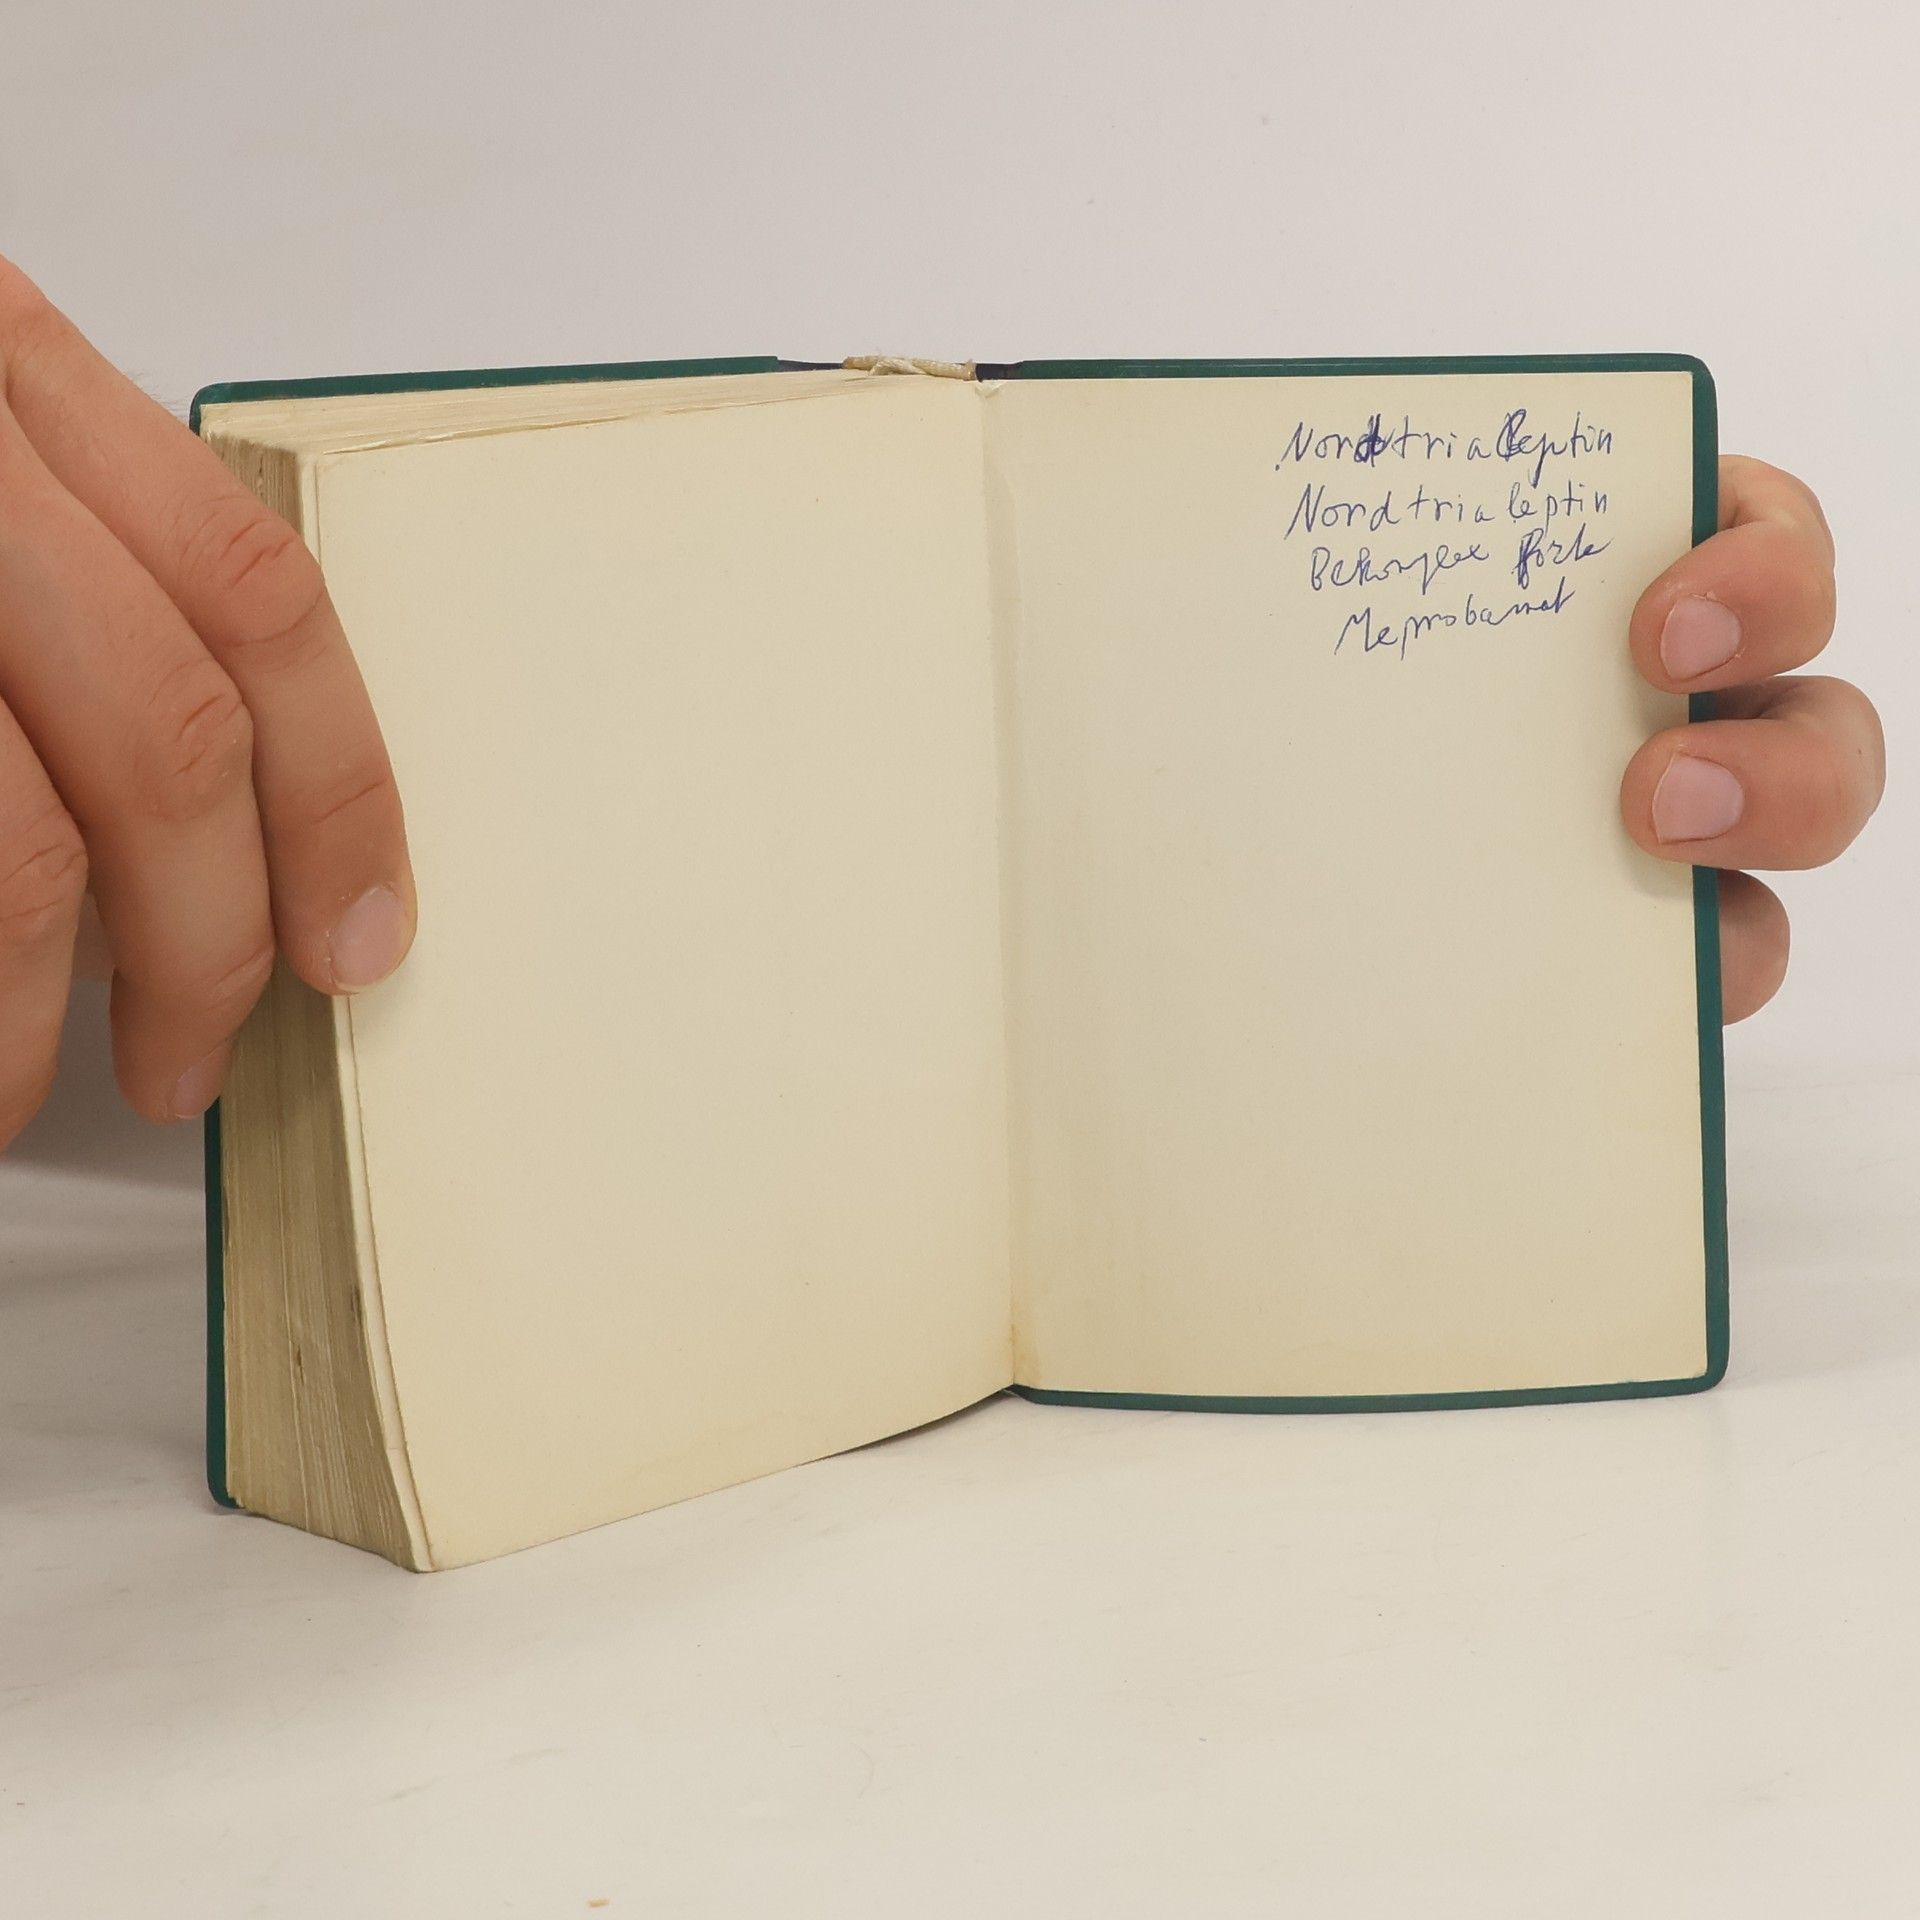 Nordtrialeptin
Nordtrialeptin
Bekomplex forte
Meprobamat